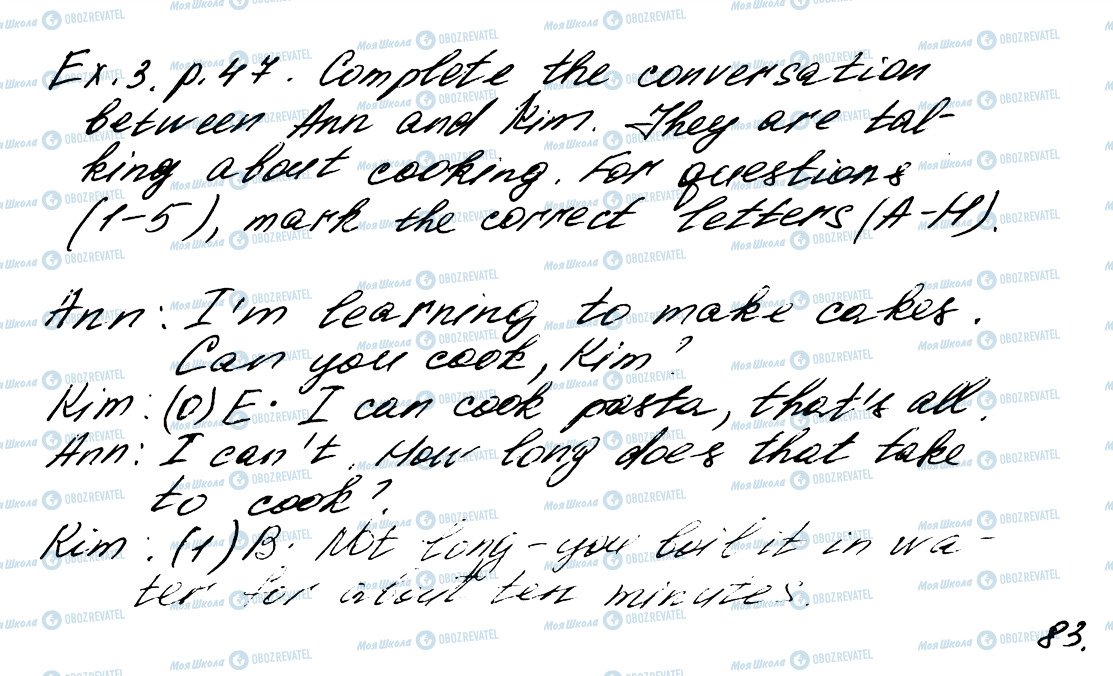 Ex.3. p.47. Complete the conversation
between Ann and Kim. They are tal-
king about cooking. For questions
(1-5), mark the correct letters (A-H).
Ann: I'm learning to make cakes.
Can you cook, Kim?
Kim: (0) E. I can cook pasta, that's all.
Ann: I can't. How long does that take
to cook?
Kim: (1) B. Not long - you boil it in wa-
ter for about ten minutes.
83.
Моя Школа OBOZREVATEL